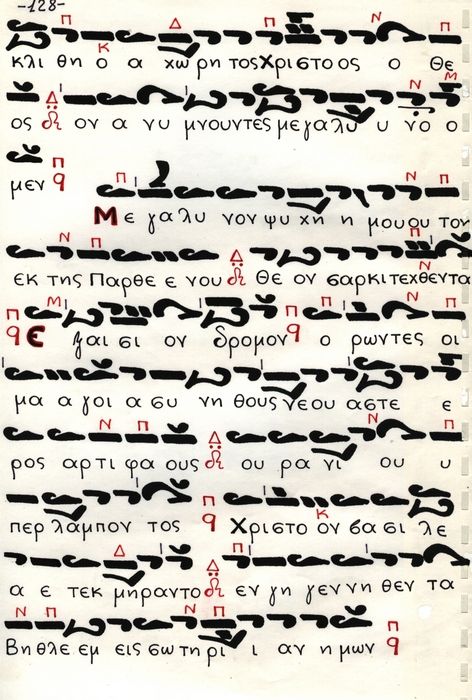 -128-
κλι θη ο α χω ρη τος Χριστο ος ο θε
ος ον α νυ μνουντες μεγαλυ υ νο ο
μεν
Με γαλυ νον ψυ χη η μου ου τον
εκ της Παρθε ε νου Θε ον σαρκι τεχθεντα
Ε ξαι σι ον δρομον ο ρωντες οι
μα α γοι α συ νη θους νεου αστε ε
ρος αρτι φα ους ου ρα νι ου υ
περ λαμπον τος Χριστο ον βασι λε
α ε τεκ μηραντο εν γη γεννη θεν τα
Βηθλε εμ εις σω τηρι ι αν η μων